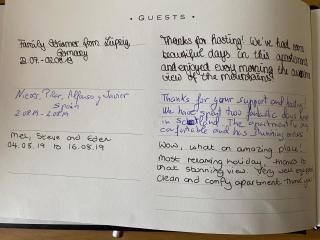 • GUESTS •
Family from Leipzig,
Germany
22.07. - 02.08.19
Thanks for hosting! We've had
beautiful days in this apartment
and enjoyed every morning the
view of the mountains!
Pilar, Alfonso y Javier
Spain
Thanks for your support and
We have spent two fantastic days here
in The apartment is
comfortable and has stunning
Mel, Steve and
04.08.19 to 16.08.19
Wow, what an amazing place!
Most relaxing holiday, thanks to
that stunning view. Very well equipped
clean and comfy apartment. Thank you